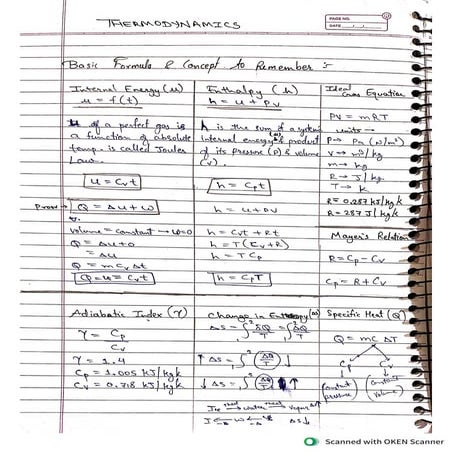 THERMODYNAMICS
PAGE NO.
DATE
Basic Formula & Concept to Remember :-
Internal Energy (u)
u = f(t)
u of a perfect gas is
a function of absolute
temp. is called Joules
Law.
u = Cvt
Prove → Q = Δu + w
Volume = constant → w=0
Q = Δu+0
= Δu
Q = m Cv Δt
Enthalpy (h)
h = u + Pv
h is the sum of a system
internal energy & product
of its pressure (P) & volume
(v).
h = Cpt
h = u + PV
h = Cvt + Rt
h = T(Cv+R)
h = T Cp
h = CpT
Ideal
Gas Equation
PV = mRT
units —
P → Pa (N/m²)
V → m³/kg
m → kg
R → J/kg
T → K
R = 0.287 kJ/kg k
R = 287 J/kg k
Mayer's Relation
R = Cp - Cv
Cp = R + Cv
Adiabatic Index (γ)
γ = Cp
Cv
γ = 1.4
Cp = 1.005 kJ/kg k
Cv = 0.718 kJ/kg k
Change in Entropy
Ice → water → vapour ΔS↑
ΔS↓
Specific Heat (Q)
Q = mC ΔT
Cp Cv
Constant pressure
Constant Volume
Scanned with OKEN Scanner